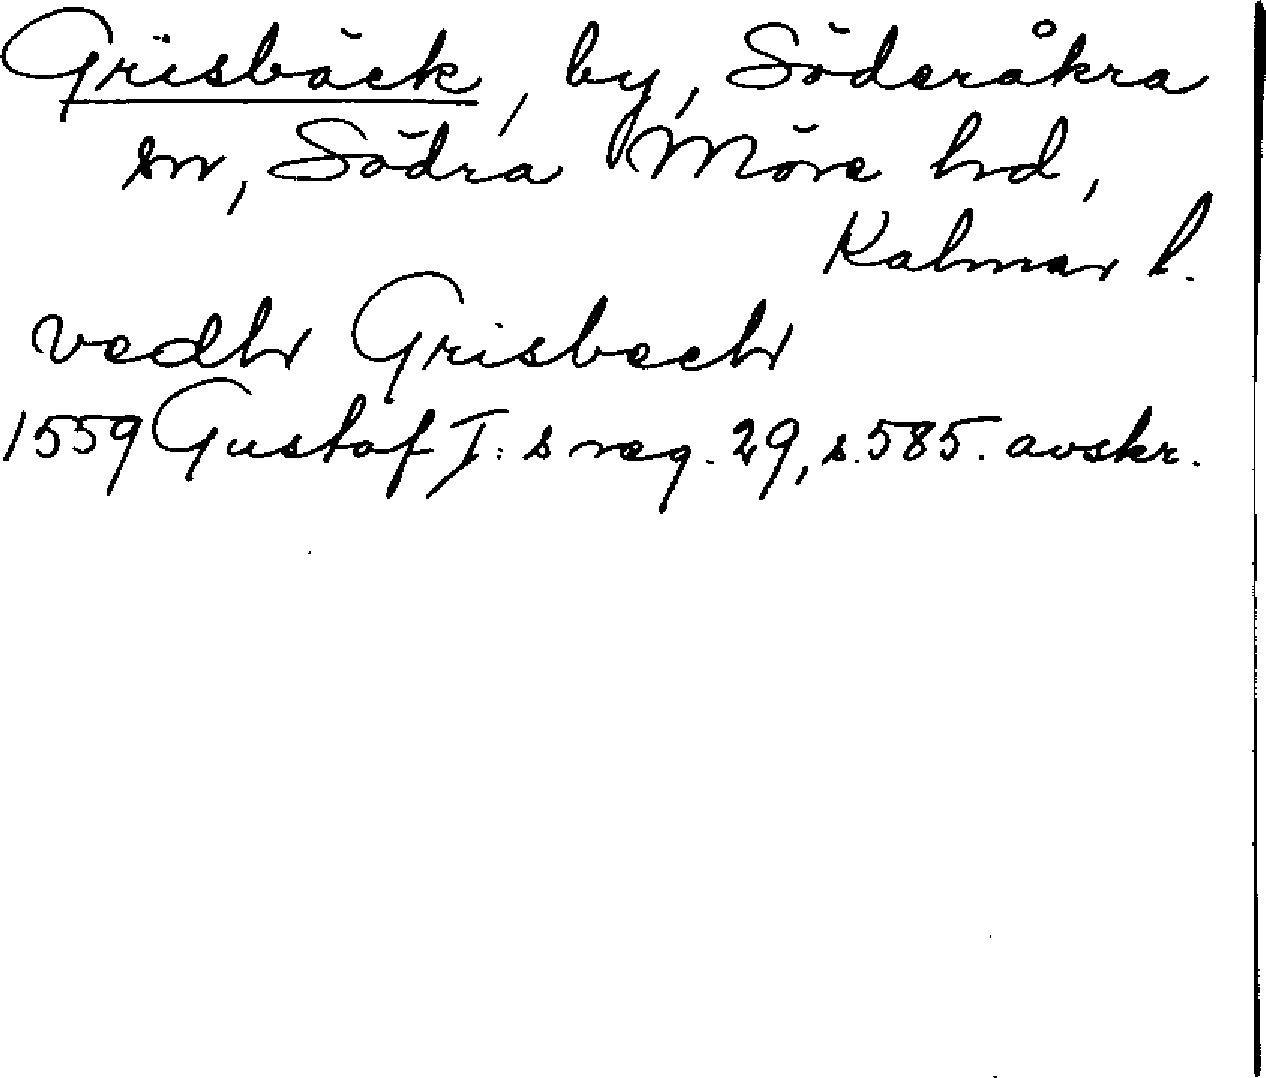 Grisbäck, by, Söderåkra
sn, Södra Möre hd,
Kalmar l.
vedh Grisbech
1559 Gustaf I:s reg. 29, s. 585. avskr.